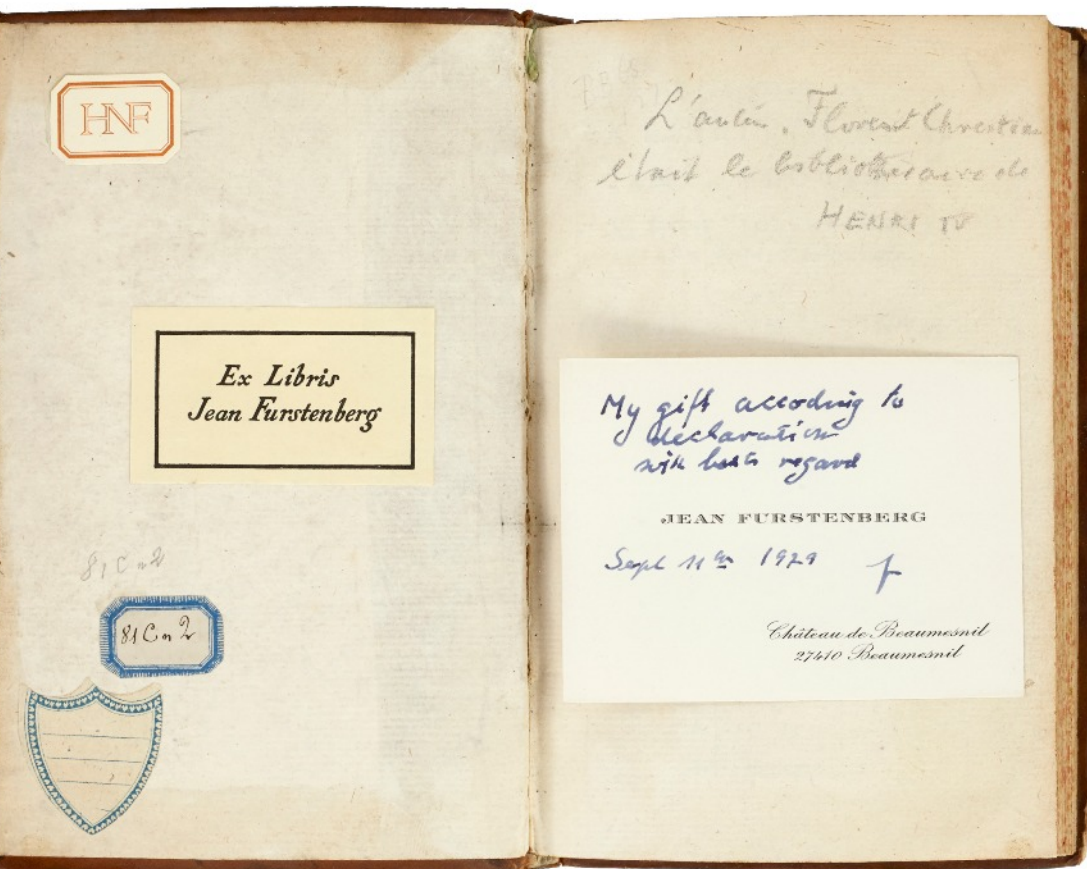 HNF
Ex Libris
Jean Furstenberg
81 C n 2
81 C n 2
L'auteur, Florent Chrestien
était le bibliothécaire de
HENRI IV
My gift accoding to
declaration
with best regard
JEAN FURSTENBERG
Sept 11th 1979
Château de Beaumesnil
27410 Beaumesnil